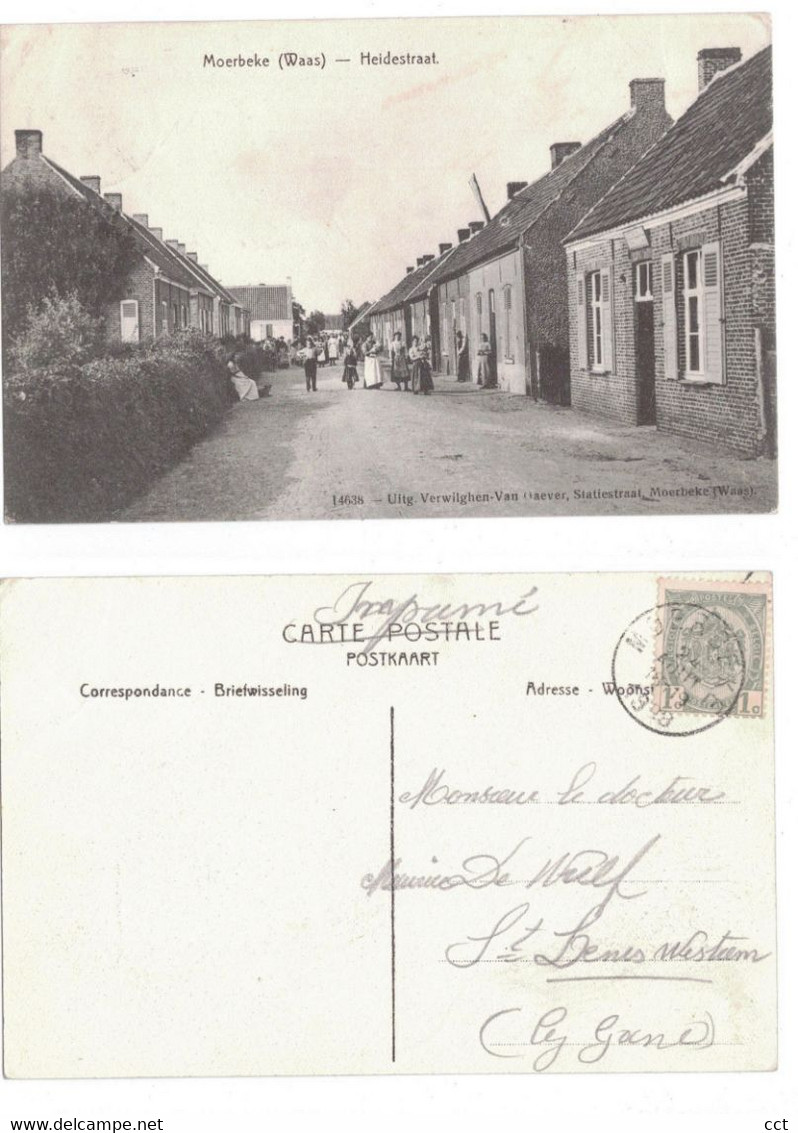 Moerbeke (Waas) — Heidestraat.
14638 — Uitg. Verwilghen-Van Daever, Statiestraat, Moerbeke (Waas).
Imprimé
CARTE POSTALE
POSTKAART
Correspondance - Briefwisseling
Adresse - Woonst
POSTES
1c 1c
Monsieur le docteur
Maurice De Wulf
St Denis Westrem
(by Gand)
cct